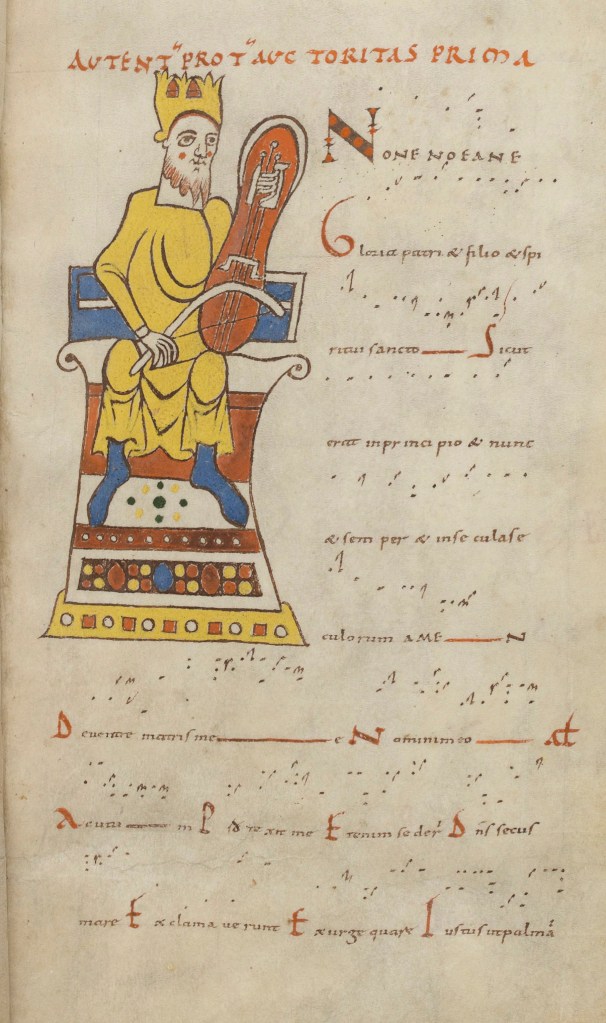 AUTENT' PROT' AUCTORITAS PRIMA
NONENOEANE
Gloria patri & filio & spi
ritui sancto Sicut
erat inprincipio & nunc
& semper & inseculase
culorum AMEN
Deventre matrisme e Nominimeo at
Acutu m P sd Etenimseder' Dns secus
mare E Exclamaverunt Exurge quare Iustusutpalma